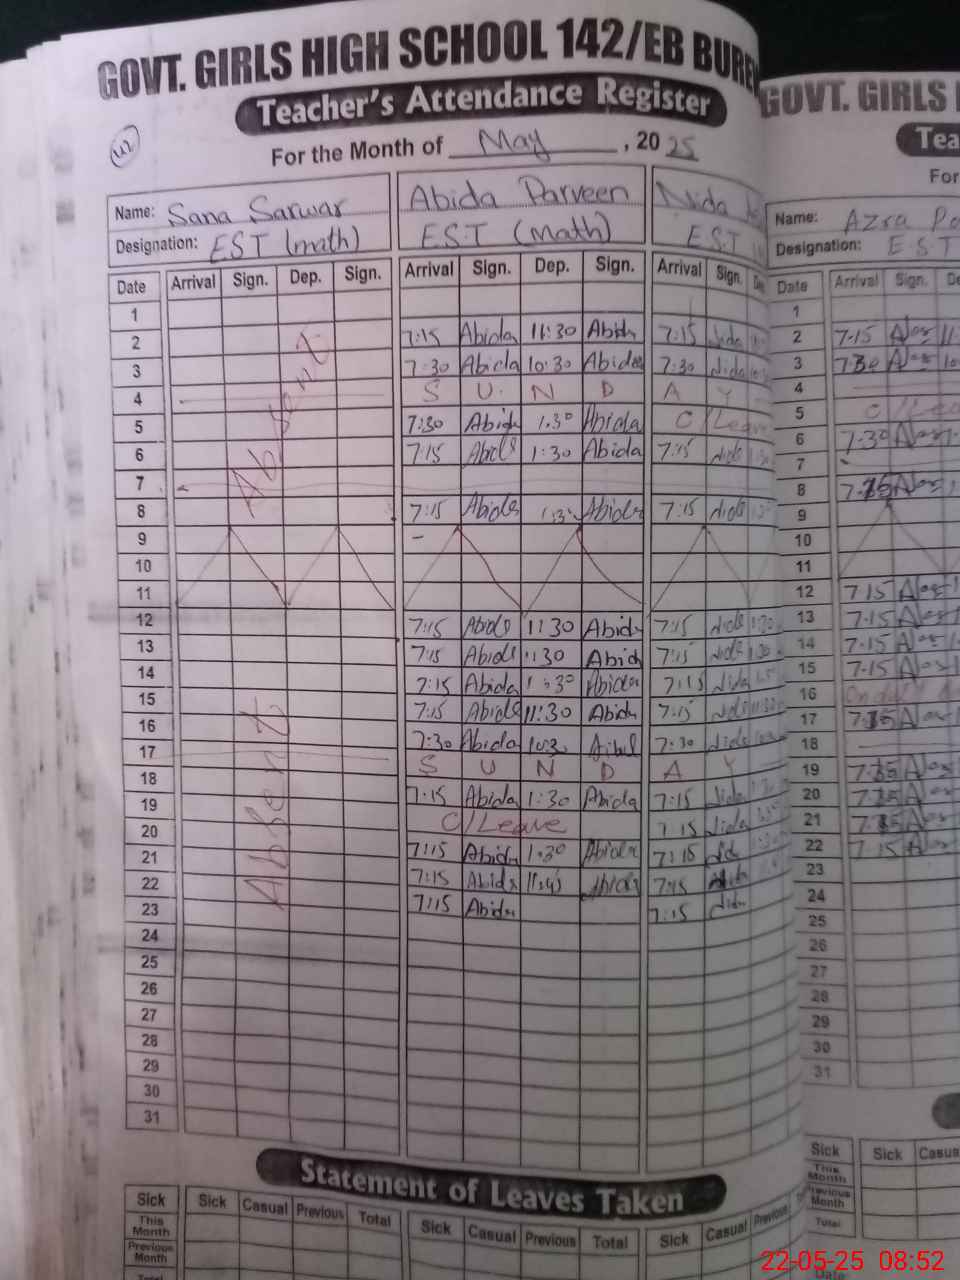 GOVT. GIRLS HIGH SCHOOL 142/EB BURE
Teacher's Attendance Register
For the Month of May, 2025
Name: Sana Sarwar Abida Parveen Nida
Designation: EST (math) E.S.T (math) EST
Date Arrival Sign. Dep. Sign. Arrival Sign. Dep. Sign. Arrival Sign.
1
2 7:15 Abida 11:30 Abida 7:15 Nida
3 7:30 Abida 10:30 Abida 7:30 Nida
4 S U N D A Y
5 7:30 Abida 1:30 Abida C/Leave
6 7:15 Abida 1:30 Abida 7:15 Nida
7
8 7:15 Abida 1:3 Abida 7:15 Nida
9
10
11
12 7:15 Abida 11:30 Abida 7:15 Nida
13 7:15 Abida 1:30 Abida 7:15 Nida
14 7:15 Abida 1:30 Abida 7:15 Nida
15 7:15 Abida 11:30 Abida 7:15 Nida
16 7:30 Abida 7:30 Nida
17
S U N D A Y
18 7:15 Abida 1:30 Abida 7:15 Nida
19 C/Leave 7:15 Nida
20 7:15 Abida 1:30 Abida 7:15
21 7:15 Abida Abida 7:15
22 7:15 Abida 7:15
23
24
25
26
27
28
29
30
31
Absent
Absent
Statement of Leaves Taken
Sick Sick Casual Previous Total Sick Casual Previous Total Sick Casual Previous
This Month
Previous Month
Total
GOVT. GIRLS
Tea
For
Name: Azra
Designation: E.S.T
Date Arrival Sign.
1
2 7:15
3 7:30
4
5 C/Lea
6 7:30
7
8 7:15
9
10
11
12 7:15
13 7:15
14 7:15
15 7:15
16
17 7:15
18
19 7:15
20 7:15
21 7:15
22 7:15
23
24
25
26
27
28
29
30
31
Sick Sick Casua
This Month
Previous Month
Total
22-05-25 08:52